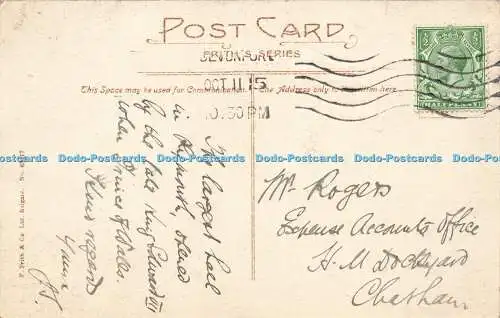 POST CARD
FRITH'S SERIES
DEVONPORT
OCT 11 15
10.30 PM
This Space may be used for Communication. The Address only to be written here.
HALFPENNY
The largest
in Plymouth, opened
by the late King Edward VII
when Prince of Wales.
regards
Yours
Mr Rogers
Expense Accounts Office
H. M Dockyard
Chatham
F. Frith & Co. Ltd. Reigate. No.
Dodo-Postcards Dodo-Postcards Dodo-Postcards Dodo-Postcards Dodo-Postcards Dodo-Postcards